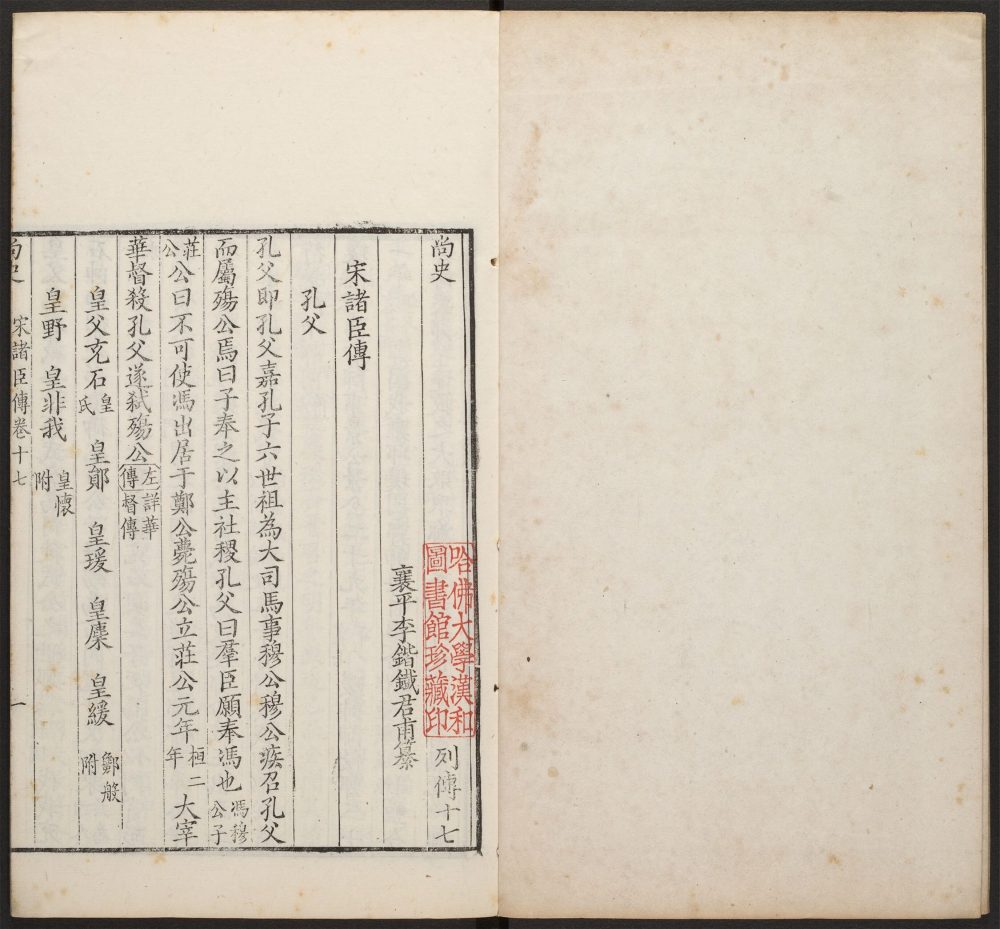 尚史 列傳十七
哈佛大學漢和
圖書館珍藏印
襄平李鍇鐵君甫纂
宋諸臣傳
孔父
孔父即孔父嘉孔子六世祖為大司馬事穆公穆公疾召孔父
而屬殤公焉曰子奉之以主社稷孔父曰羣臣願奉馮也馮穆公子
莊公公曰不可使馮出居于鄭公薨殤公立莊公元年桓二年大宰
華督殺孔父遂弑殤公左傳詳華督傳
皇父充石皇氏 皇鄖 皇瑗 皇麇 皇緩鄭般附
皇野 皇非我皇懷附
尚史 宋諸臣傳卷十七 一